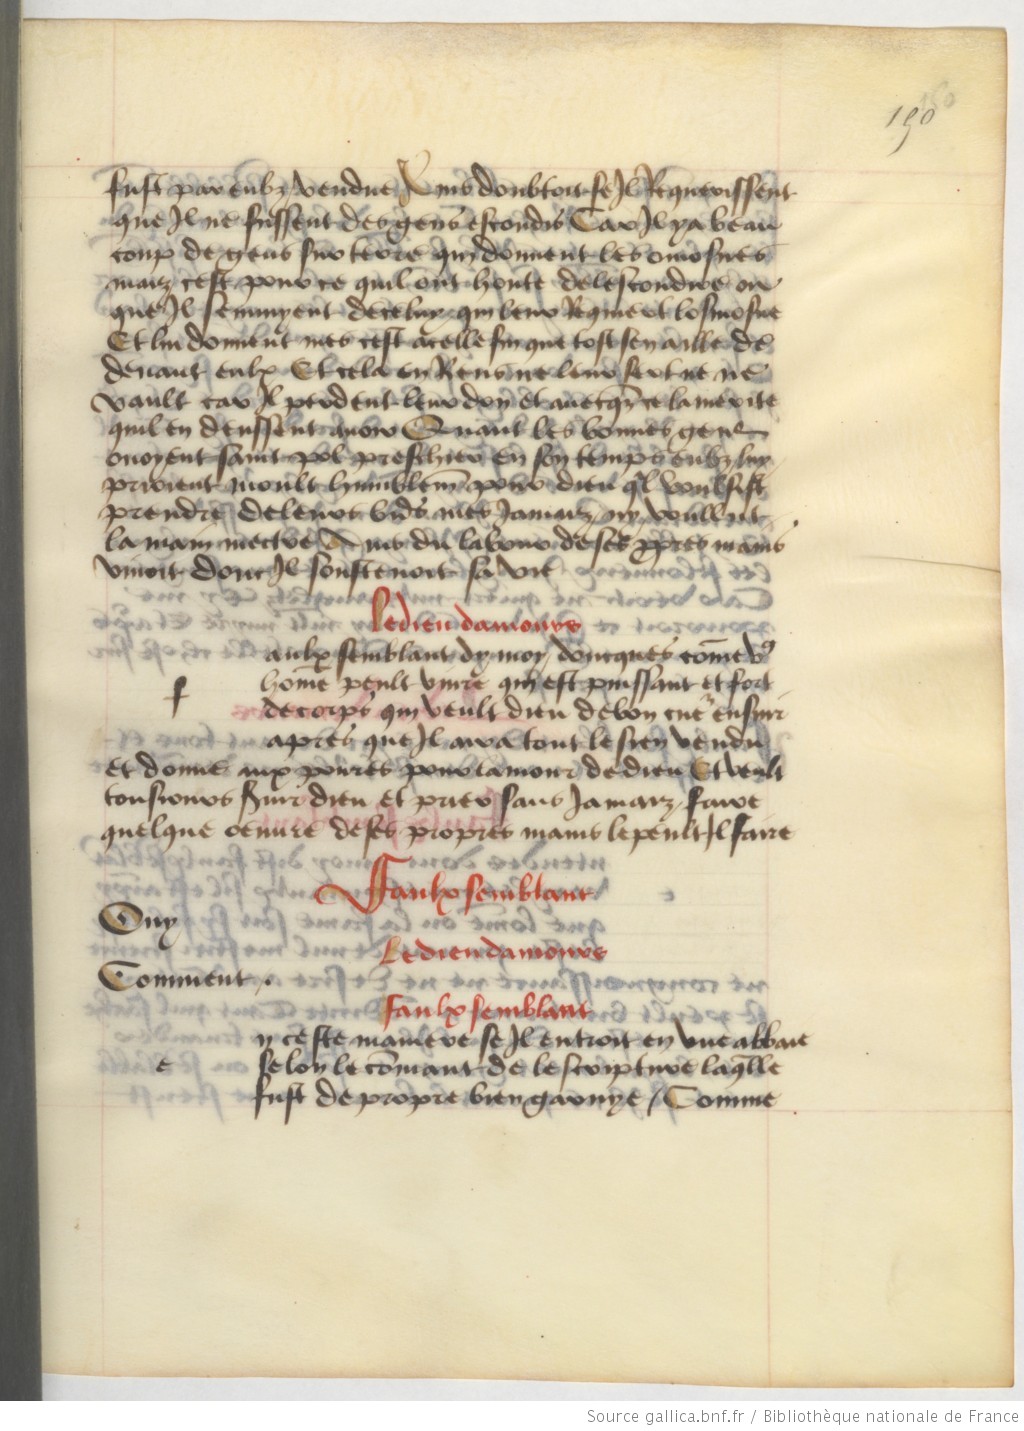 150
fust par eulx vendue Ains doubtoit se Il Requerissent
que Il ne fussent des gens escondis Car Il ya beau
coup de gens sur terre qui donnent les omosnes
maiz cest pour ce quil ont honte de lescondire ou
que Il sennuyent de celuy qui leur Requiert losmosne
Et lui donnent mes cest a celle fin que tost sen aille de
deuant eulx Et cela en Riens ne leur sert ne ne
vault car Il perdent leur don et auecqz ce la merite
quil en deussent auoir Quant les bonnes gens
ouoyent saint pol preschier en son temps eulx luy
prioient moult humblem̄t pour dieu ql voulsist
prendre de leurs bn̄s mes Jamaiz ny voullut
la main mectre Ains du labour de ses ppres mains
viuoit dont Il soustenoit sa vie
Le dieu damours
aulx semblant dy moy doncques com̄e vng
f
hom̄e peult viure qui est puissant et fort
de corps qui veult dieu de bon cue͛ ensuir
apres que Il aura tout le sien vendu
et donne aux poures pour lamour de dieu Et veult
tousiours seruir dieu et prier sans Jamaiz faire
quelque oeuure de ses propres mains le peult Il faire
Faulx semblant
Ouy
Le dieu damours
Comment
faulx semblant
n ceste maniere se Il entroit en vne abbaie
e
selon le com̄ant de lescripture laq̄lle
fust de propre bien garnye / Comme
Source gallica.bnf.fr / Bibliothèque nationale de France